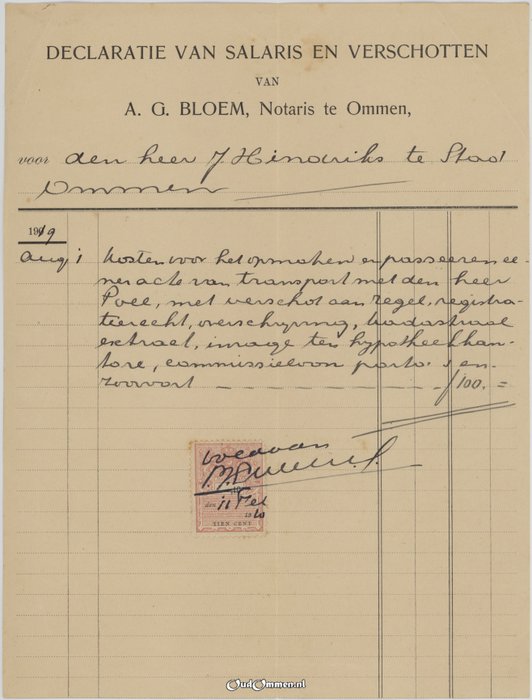 DECLARATIE VAN SALARIS EN VERSCHOTTEN
VAN
A. G. BLOEM, Notaris te Ommen,
voor den heer J Hindriks te Stad
Ommen
1919
Aug 1 Kosten voor het opmaken en passeeren ee-
ner acte van transport met den heer
met verschot aan zegel, registra-
tierecht, overschrijving, kadastraal
extract, inzage ten hypotheekkan-
tore, commissieloon porto's en-
zoovoort f 100. =
Voldaan
den 11 Feb
1920
TIEN CENT
OudOmmen.nl